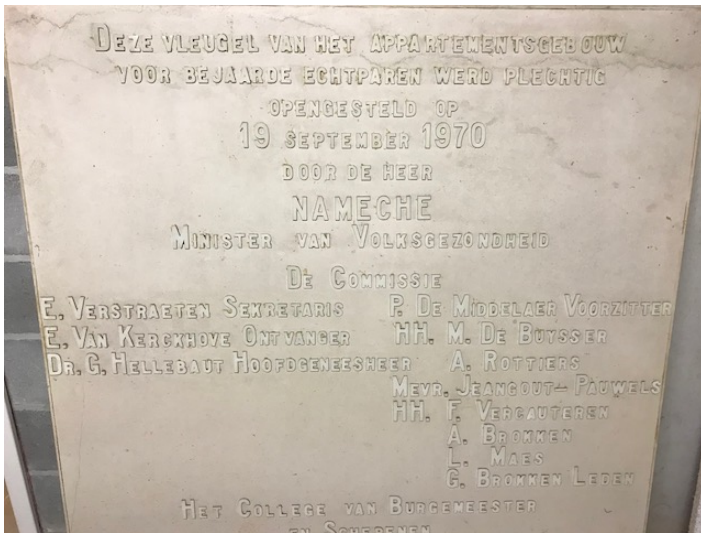 DEZE VLEUGEL VAN HET APPARTEMENTSGEBOUW
VOOR BEJAARDE ECHTPAREN WERD PLECHTIG
OPENGESTELD OP
19 SEPTEMBER 1970
DOOR DE HEER
NAMECHE
MINISTER VAN VOLKSGEZONDHEID
DE COMMISSIE
E. VERSTRAETEN SEKRETARIS P. DE MIDDELAER VOORZITTER
E. VAN KERCKHOVE ONTVANGER HH. M. DE BUYSSER
DR. G. HELLEBAUT HOOFDGENEESHEER A. ROTTIERS
MEVR. JEANGOUT-PAUWELS
HH. F. VERCAUTEREN
A. BROKKEN
L. MAES
G. BROKKEN LEDEN
HET COLLEGE VAN BURGEMEESTER
EN SCHEPENEN